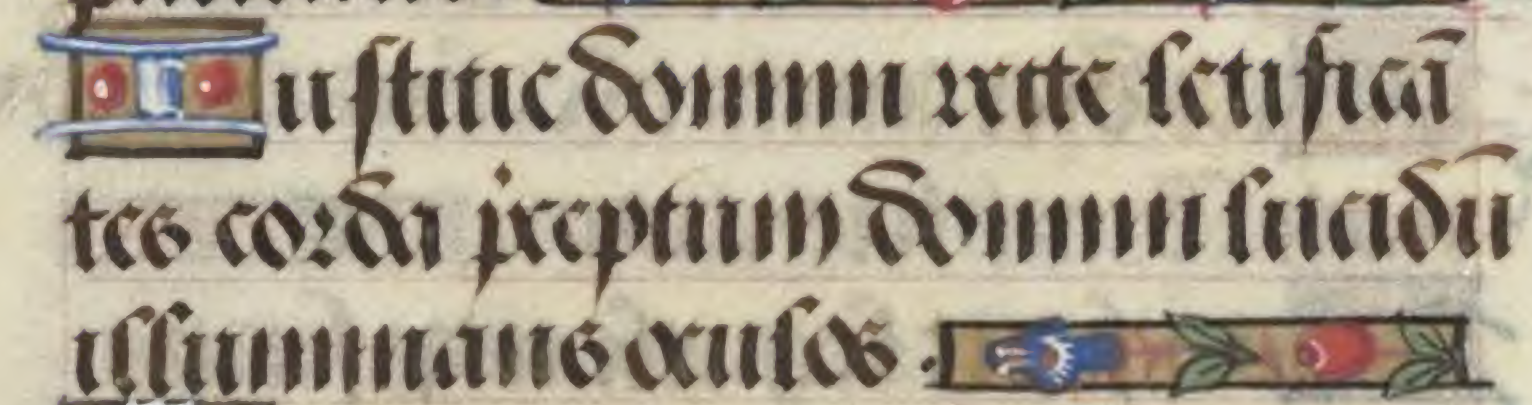 Iustitie domini recte letificā
tes corda preceptum domini lucidū
illuminans oculos.